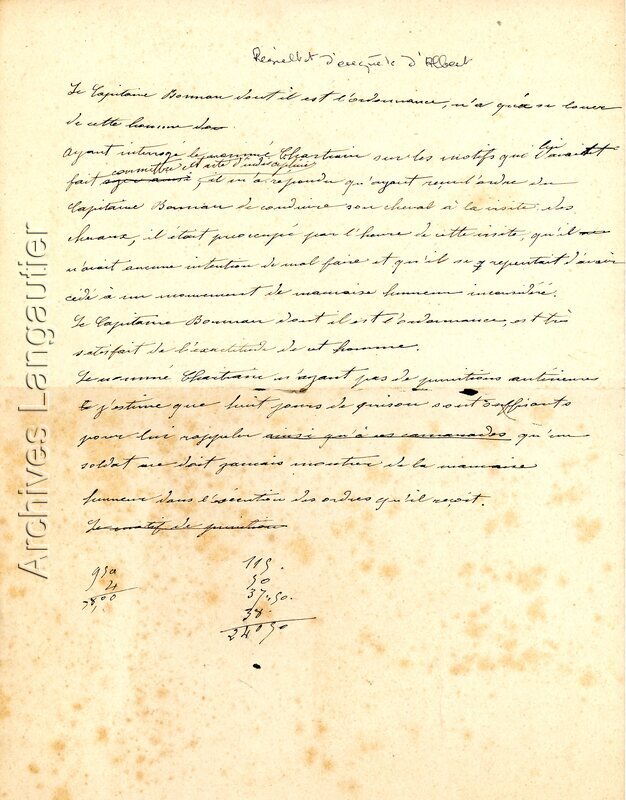 Résultat d'enquête d'Albert
Le Capitaine Bonnan dont il est l'ordonnance, n'a qu'à se louer
de cette homme
Ayant interrogé le nommé Chartrain sur les motifs qui l'avaient
commettre cet acte d'indiscipline
fait agir ainsi, il m'a répondu qu'ayant reçu l'ordre du
Capitaine Bonnan de conduire son cheval à la visite des
chevaux, il était préoccupé par l'heure de cette visite, qu'il
n'avait aucune intention de mal faire et qu'il se repentait d'avoir
cédé à un mouvement de mauvaise humeur inconsidéré.
Le Capitaine Bonnan dont il est l'ordonnance, est très
satisfait de l'exactitude de cet homme.
Le nommé Chartrain n'ayant pas de punitions antérieures
j'estime que huit jours de prison sont suffisants
pour lui rappeler ainsi qu'à ses camarades qu'un
soldat ne doit jamais montrer de la mauvaise
humeur dans l'exécution des ordres qu'il reçoit.
Le motif de punition
950
4
115.
50
37.50.
38
240 50
Archives Langautier